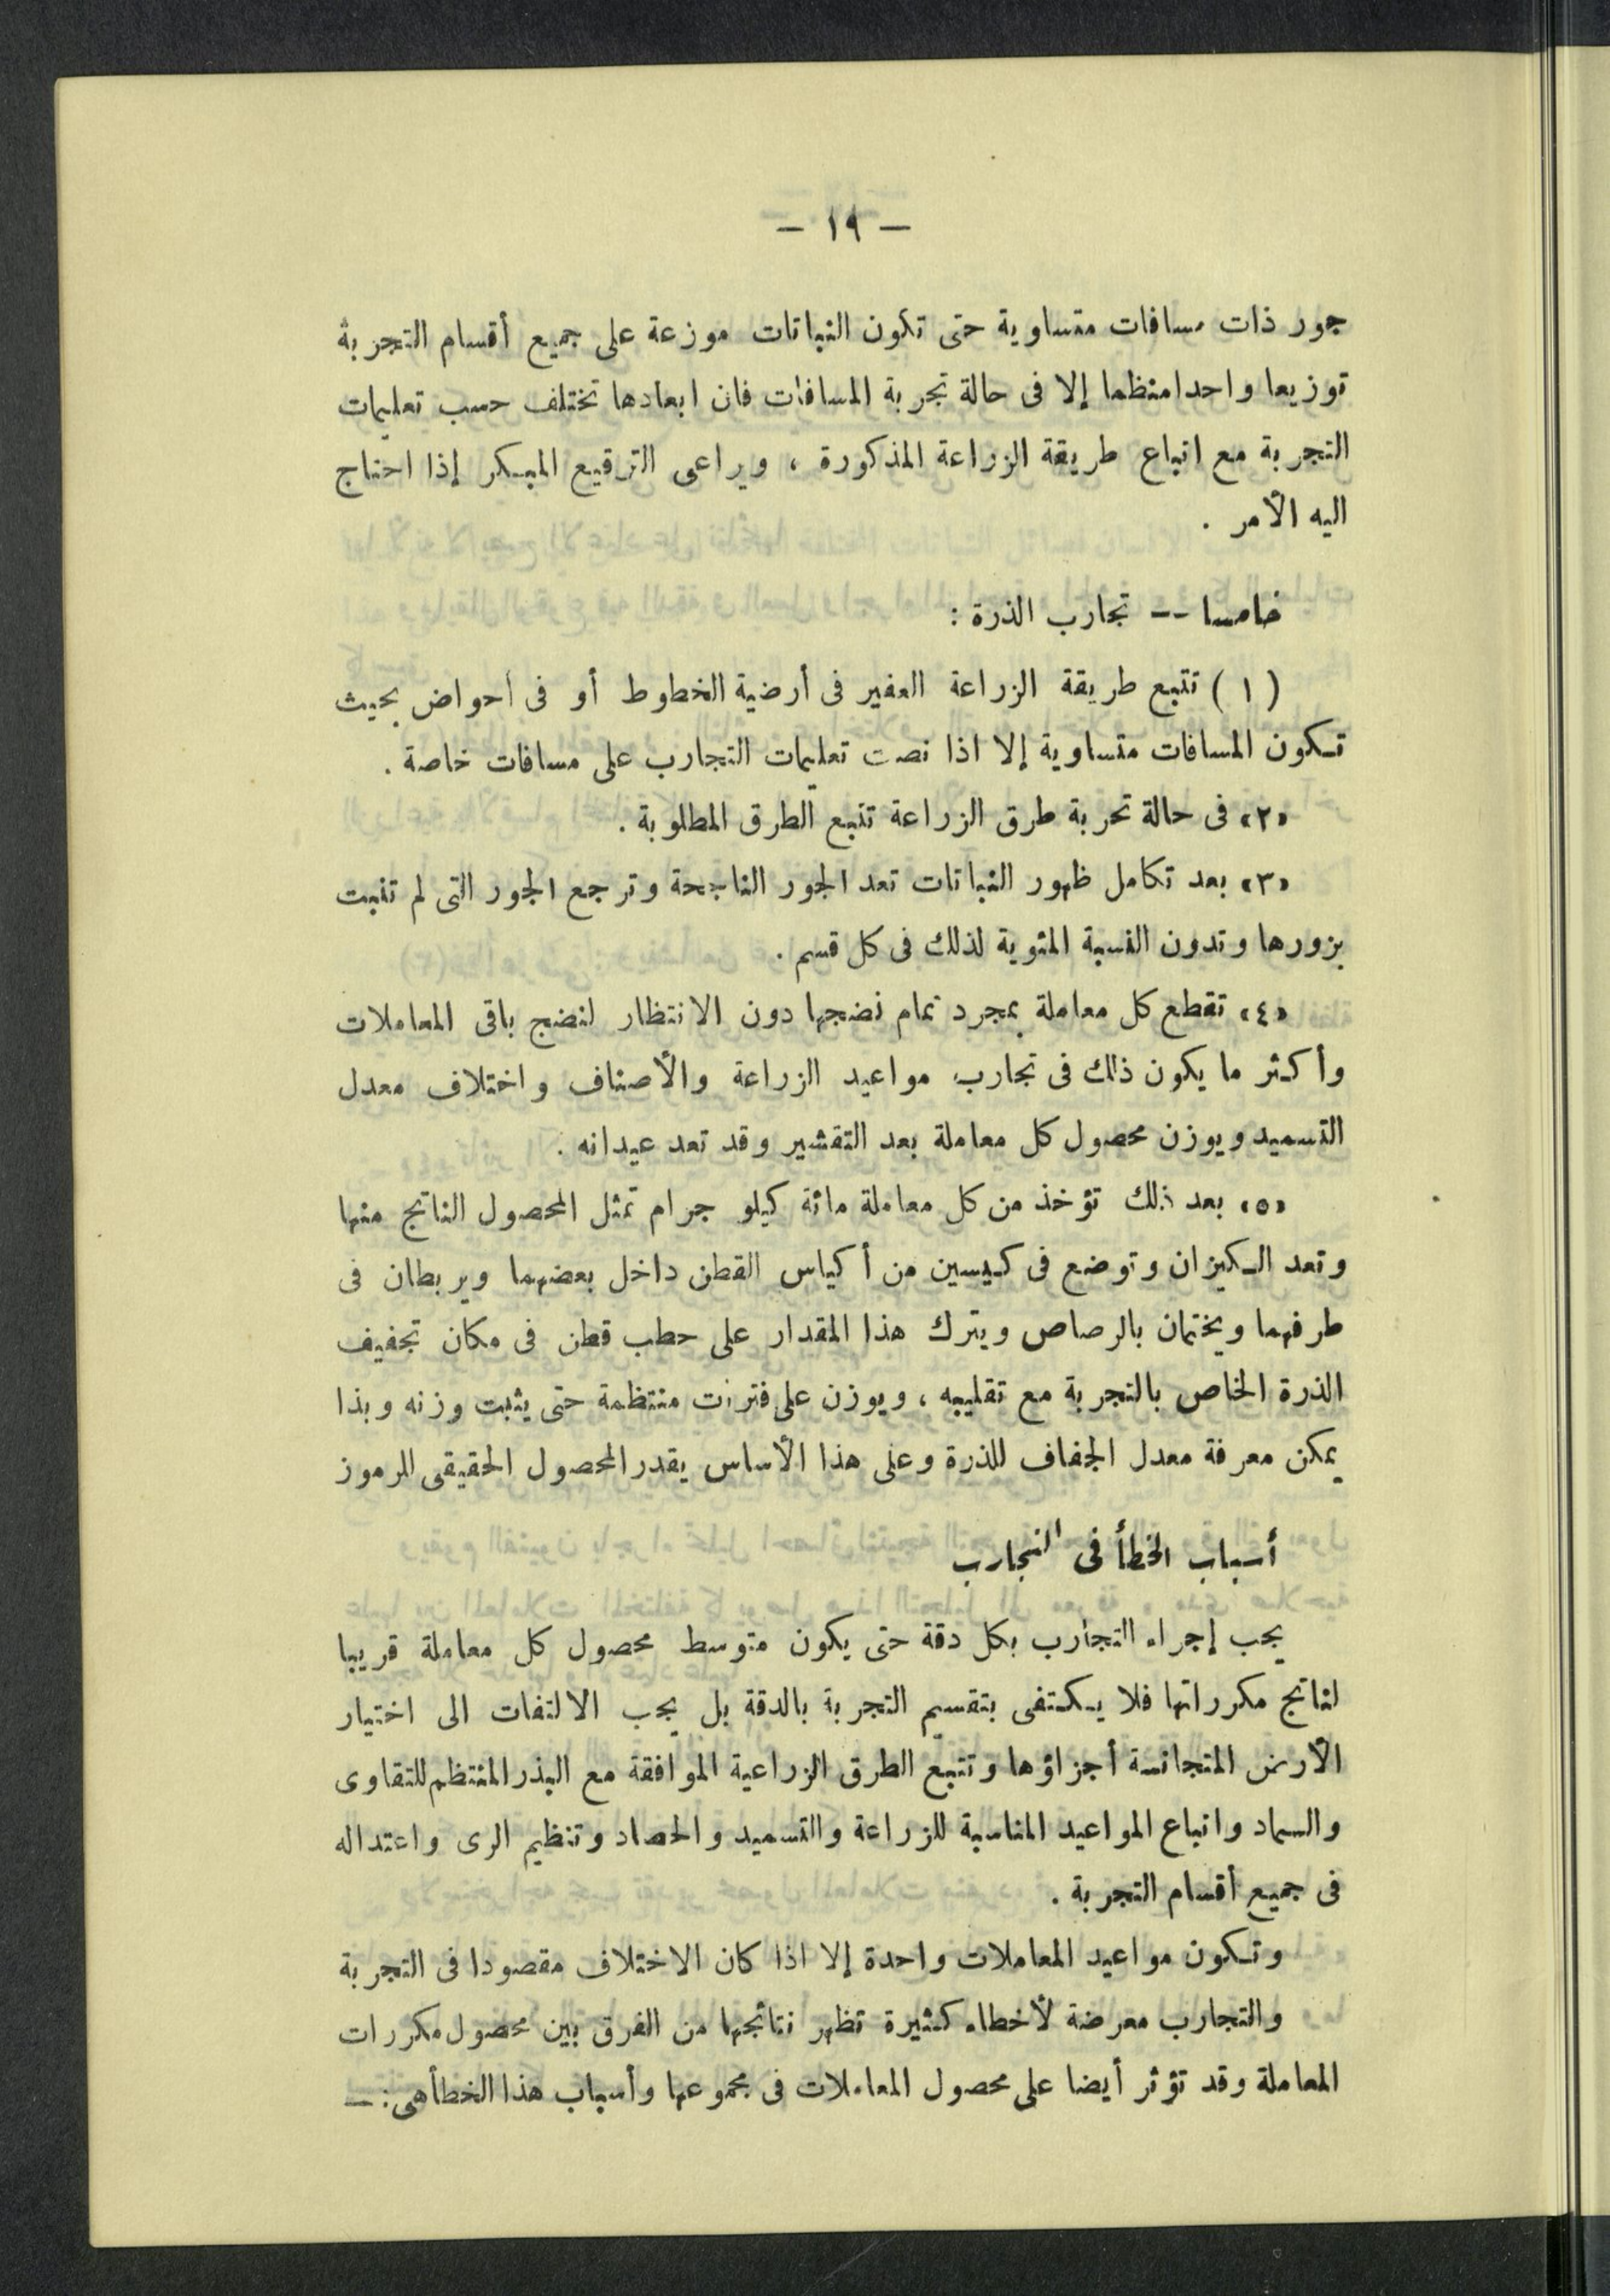 — ١٩ —
جور ذات مسافات متساوية حتى تكون النباتات موزعة على جميع أقسام التجربة
توزيعا واحدا منتظما إلا فى حالة تجربة المسافات فان ابعادها تختلف حسب تعليمات
التجربة مع اتباع طريقة الزراعة المذكورة ، ويراعى الترقيع المبكر إذا احتاج
اليه الأمر .
خامسا -- تجارب الذرة :
( ١ ) تتبع طريقة الزراعة العفير فى أرضية الخطوط أو فى أحواض بحيث
تكون المسافات متساوية إلا اذا نصت تعليمات التجارب على مسافات خاصة .
«٢» فى حالة تحربة طرق الزراعة تتبع الطرق المطلوبة .
«٣» بعد تكامل ظهور النباتات تعد الجور الناجحة وترجع الجور التى لم تنبت
بزورها وتدون النسبة المئوية لذلك فى كل قسم .
«٤» تقطع كل معاملة بمجرد تمام نضجها دون الانتظار لنضج باقى المعاملات
وأكثر ما يكون ذلك فى تجارب مواعيد الزراعة والأصناف واختلاف معدل
التسميد ويوزن محصول كل معاملة بعد التقشير وقد تعد عيدانه .
«٥» بعد ذلك تؤخذ من كل معاملة مائة كيلو جرام تمثل المحصول الناتج منها
وتعد الكيزان وتوضع فى كيسين من أكياس القطن داخل بعضهما ويربطان فى
طرفهما ويختمان بالرصاص ويترك هذا المقدار على حطب قطن فى مكان تجفيف
الذرة الخاص بالتجربة مع تقليبه ، ويوزن على فترات منتظمة حتى يثبت وزنه وبذا
يمكن معرفة معدل الجفاف للذرة وعلى هذا الأساس يقدر المحصول الحقيقى المرموز
أسباب الخطأ فى التجارب
يجب إجراء التجارب بكل دقة حتى يكون متوسط محصول كل معاملة قريبا
لناتج مكرراتها فلا يكتفى بتقسيم التجربة بالدقة بل يجب الالتفات الى اختيار
الأرض المتجانسة أجزاؤها وتتبع الطرق الزراعية الموافقة مع البذر المنتظم للتقاوى
والسماد واتباع المواعيد المناسبة للزراعة والتسميد والحصاد وتنظيم الرى واعتداله
فى جميع أقسام التجربة .
وتكون مواعيد المعاملات واحدة إلا اذا كان الاختلاف مقصودا فى التجربة
والتجارب معرضة لأخطاء كثيرة تظهر نتائجها من الفرق بين محصول مكررات
المعاملة وقد تؤثر أيضا على محصول المعاملات فى مجموعها وأسباب هذا الخطأ هى : —